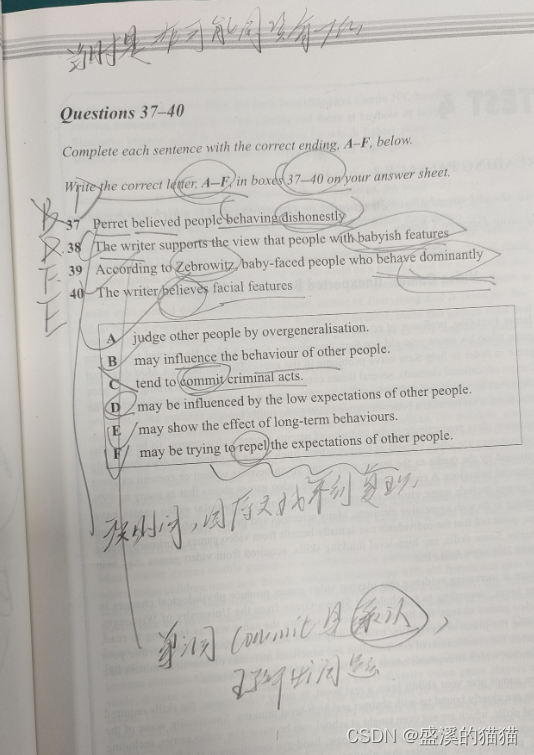 当时是
Questions 37–40
Complete each sentence with the correct ending, A–F, below.
Write the correct letter, A–F, in boxes 37–40 on your answer sheet.
37 Perret believed people behaving dishonestly
38 The writer supports the view that people with babyish features
F 39 According to Zebrowitz, baby-faced people who behave dominantly
E 40 The writer believes facial features
A judge other people by overgeneralisation.
B may influence the behaviour of other people.
C tend to commit criminal acts.
D may be influenced by the low expectations of other people.
E may show the effect of long-term behaviours.
F may be trying to repel the expectations of other people.
单词 commit 是 承认,
CSDN @盛溪的猫猫